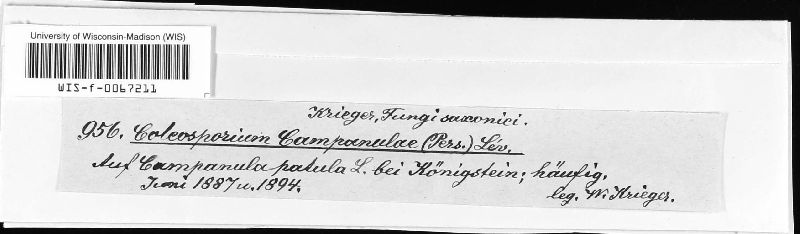 University of Wisconsin-Madison (WIS)
WIS-f-0067211
Krieger, Fungi saxonici.
956. Coleosporium Campanulae (Pers.) Lév.
Auf Campanula patula L. bei Königstein; häufig.
Juni 1887 u. 1894.
leg. W. Krieger.